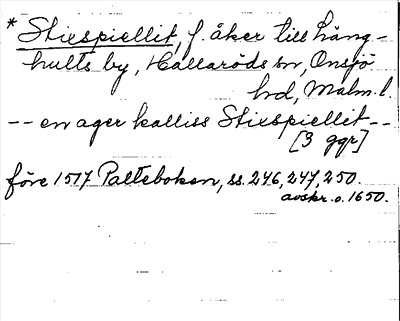 * Stixspiellit, f. åker till Häng-
hults by, Hallaröds sn, Onsjö
hd, Malm. l.
-- en ager kalliss Stixspiellit --
[3 ggr]
före 1517 Palteboken, ss. 246, 247, 250.
avskr. o. 1650.